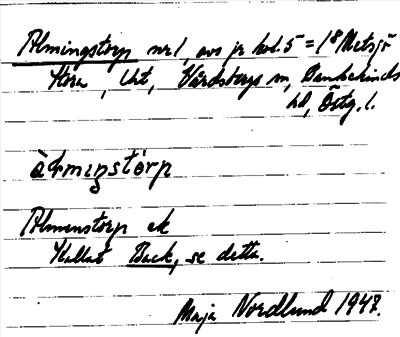 Almingstorp nr 1, avs jr bol. 5 = 1/8 Metsjö
Stora, Urt, Vårdsbergs sn, Bankekinds
hd, Östg. l.
àl·mıŋstòrp
Almenstorp ek
Kallat Back, se detta.
Maja Nordlund 1947.